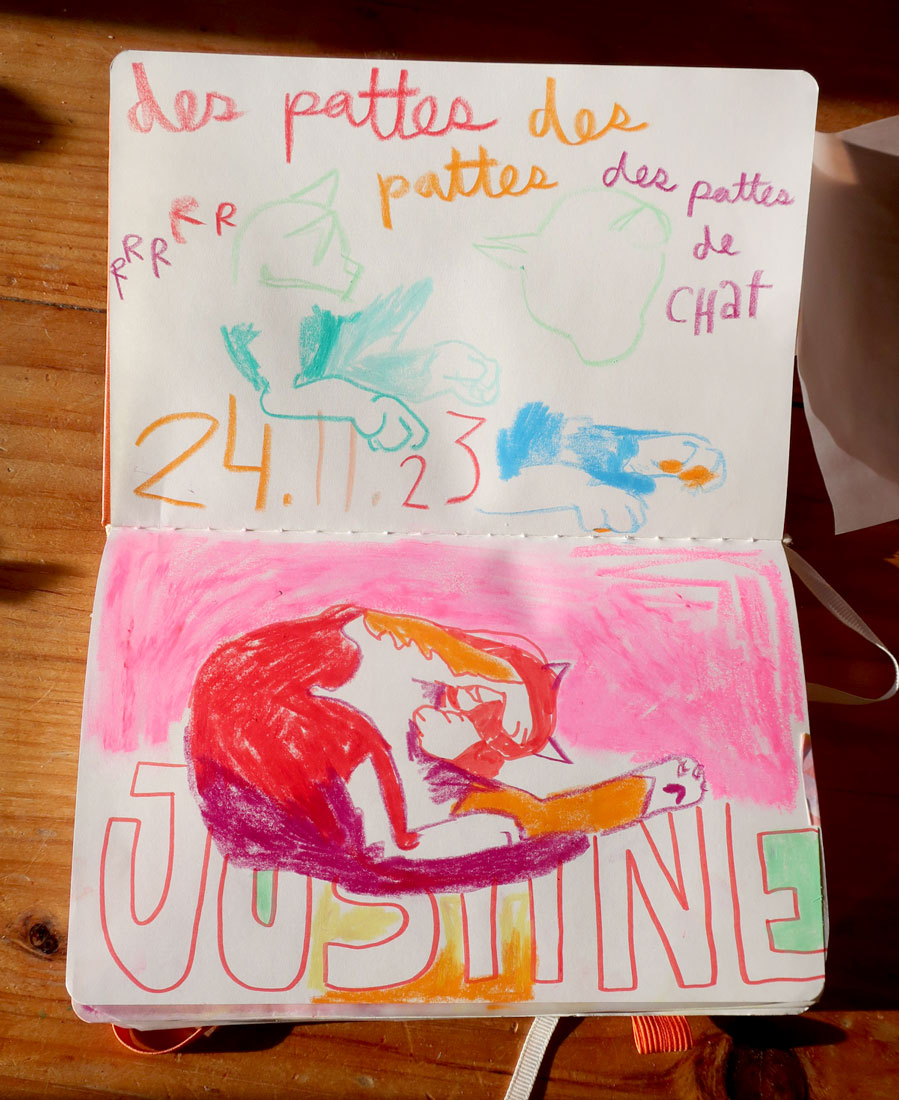 des pattes des
pattes
des pattes
de
CHat
RRRRR
24.11.23
JUSTINE